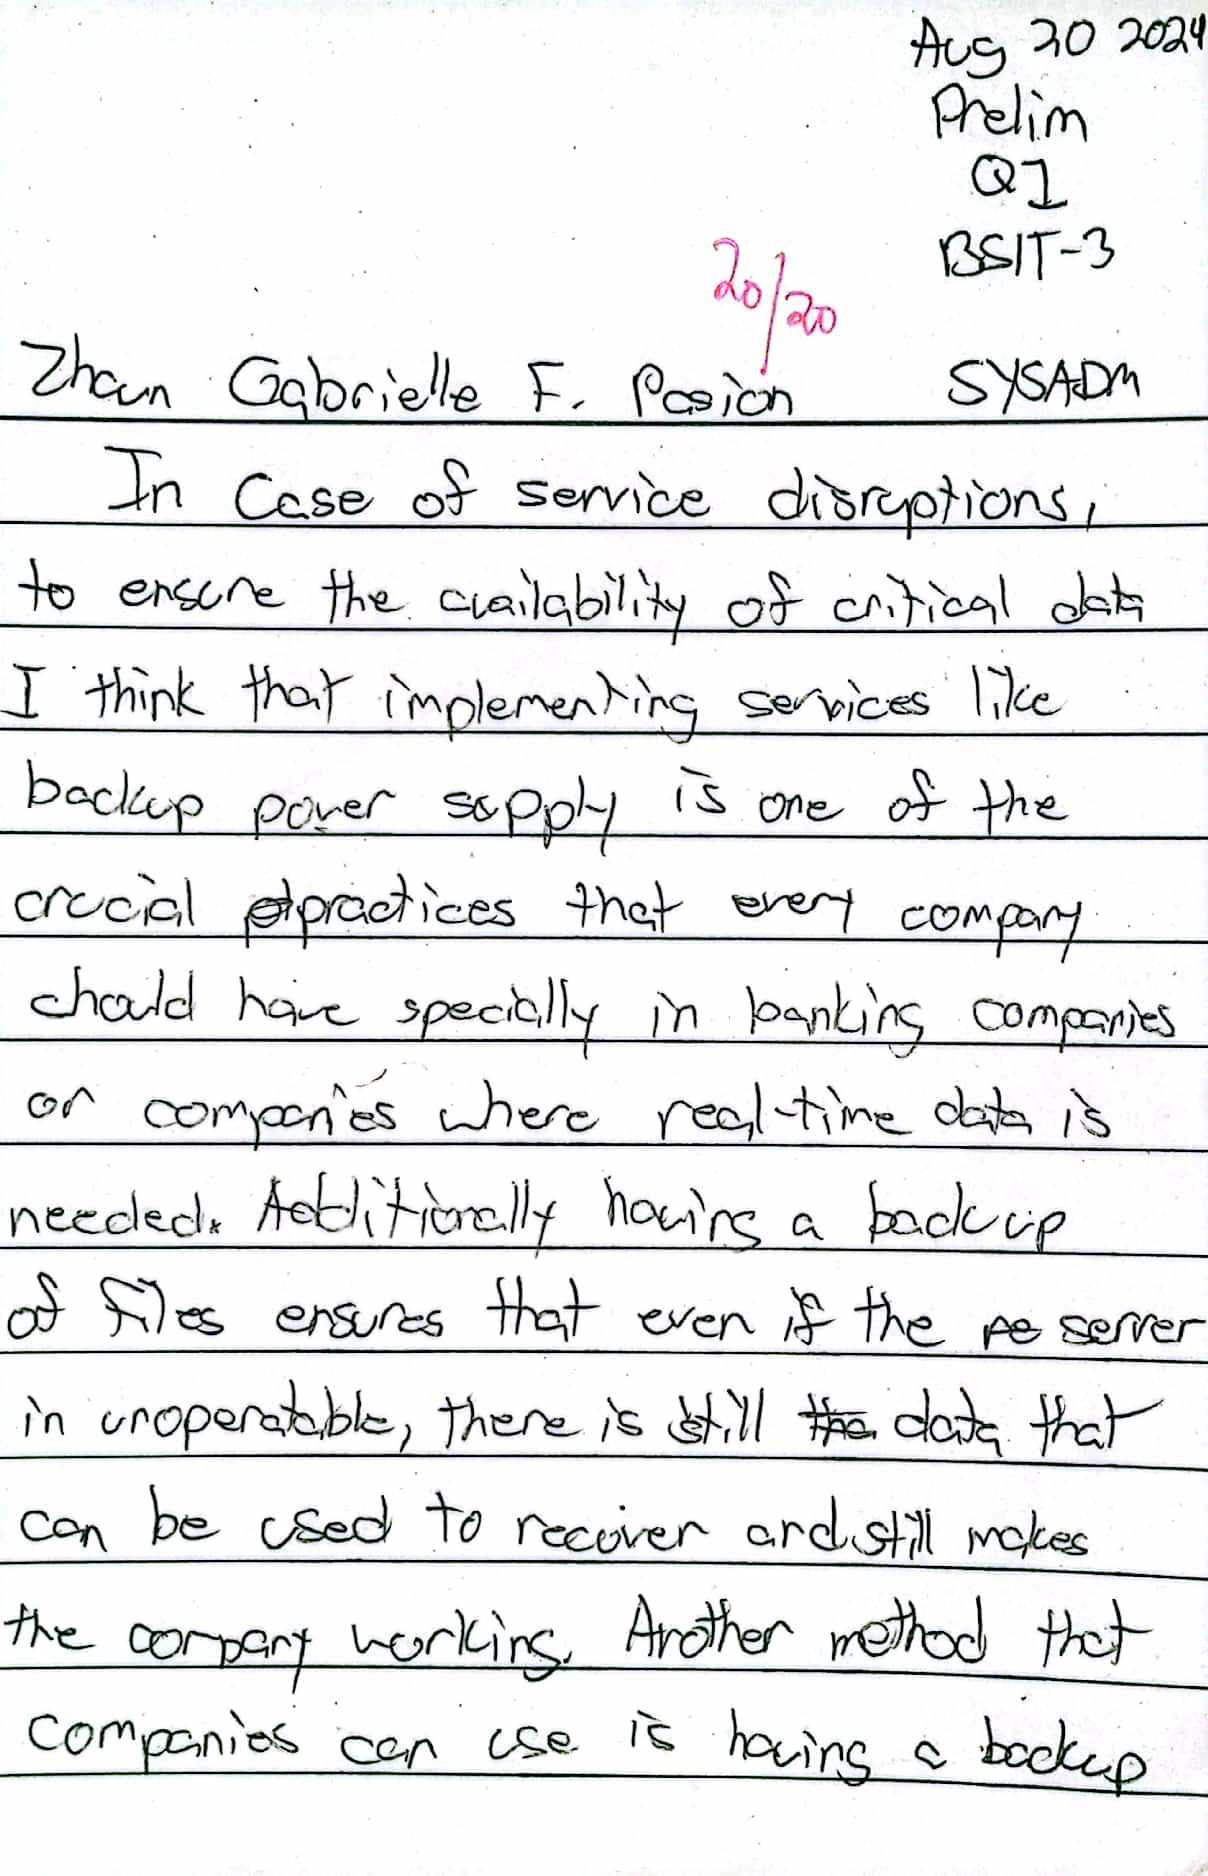 Aug 20 2024
Prelim
Q1
BSIT-3
20/20
Zhaun Gabrielle F. Pasion SYSADM
In Case of service disruptions,
to ensure the availability of critical data
I think that implementing services like
backup power supply is one of the
crucial practices that every company
should have specially in banking companies
or companies where real-time data is
needed. Additionally having a backup
of files ensures that even if the server
in unoperatable, there is still data that
can be used to recover and still makes
the company working. Another method that
companies can use is having a backup